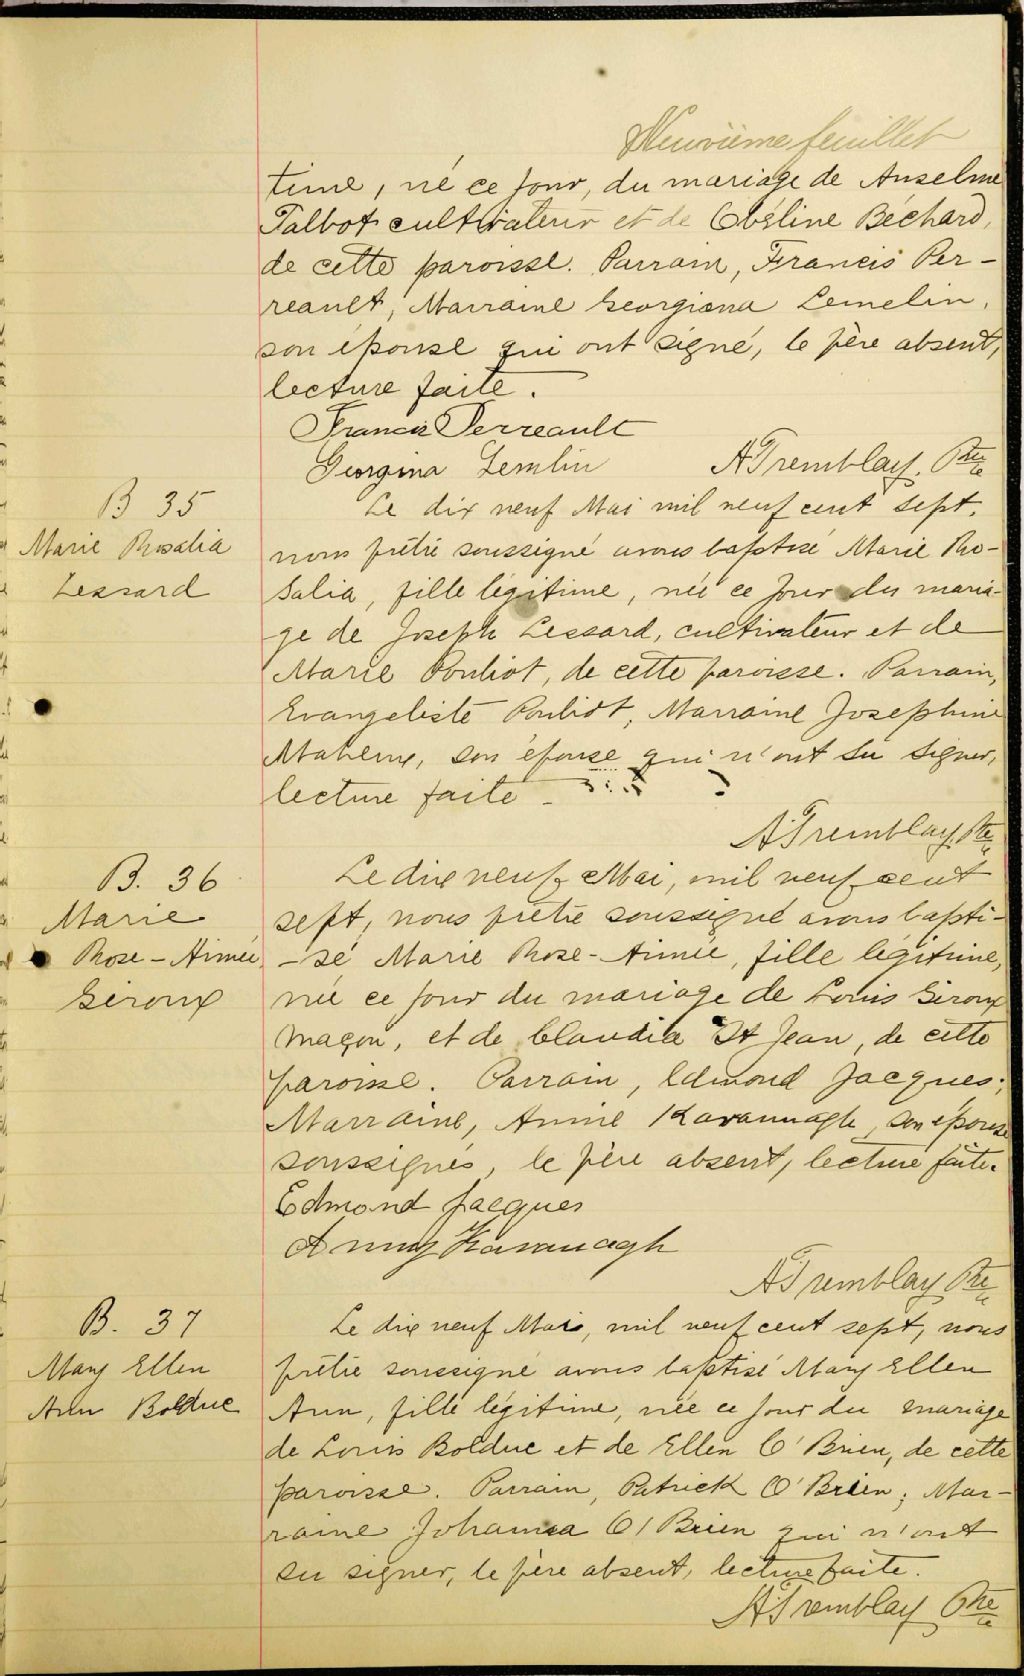 Neuvième feuillet
time, né ce jour, du mariage de Anselme
Talbot cultivateur et de Obéline Béchard,
de cette paroisse. Parrain, Francis Per-
reault, Marraine Georgiana Lemelin,
son épouse qui ont signé, le père absent,
lecture faite.
Francis Perreault
Georgina Lemlin A Tremblay, Ptre
B 35
Marie Rosalia
Lessard
Le dix neuf Mai mil neuf cent sept,
nous prêtre soussigné avons baptisé Marie Ro-
salia, fille légitime, née ce jour du maria-
ge de Joseph Lessard, cultivateur et de
Marie Pouliot, de cette paroisse. Parrain,
Evangeliste Pouliot, Marraine Josephine
Maheux, son épouse qui n'ont su signer,
lecture faite -
A Tremblay Ptre
B. 36
Marie
Rose-Aimée
Giroux
Le dix neuf Mai, mil neuf cent
sept, nous prêtre soussigné avons bapti-
-sé Marie Rose-Aimée, fille légitime,
née ce jour du mariage de Louis Giroux
maçon, et de Claudia St Jean, de cette
paroisse. Parrain, Edmond Jacques,
Marraine, Annie Kavannagh, son épouse
soussignés, le père absent, lecture faite.
Edmond Jacques
Anny Kavanagh
A Tremblay Ptre
B. 37
Mary Ellen
Ann Bolduc
Le dix neuf Mai, mil neuf cent sept, nous
prêtre soussigné avons baptisé Mary Ellen
Ann, fille légitime, née ce jour du mariage
de Louis Bolduc et de Ellen O'Brien, de cette
paroisse. Parrain, Patrick O'Brien; Mar-
raine Johanna O'Brien qui n'ont
su signer, le père absent, lecture faite.
A Tremblay Ptre